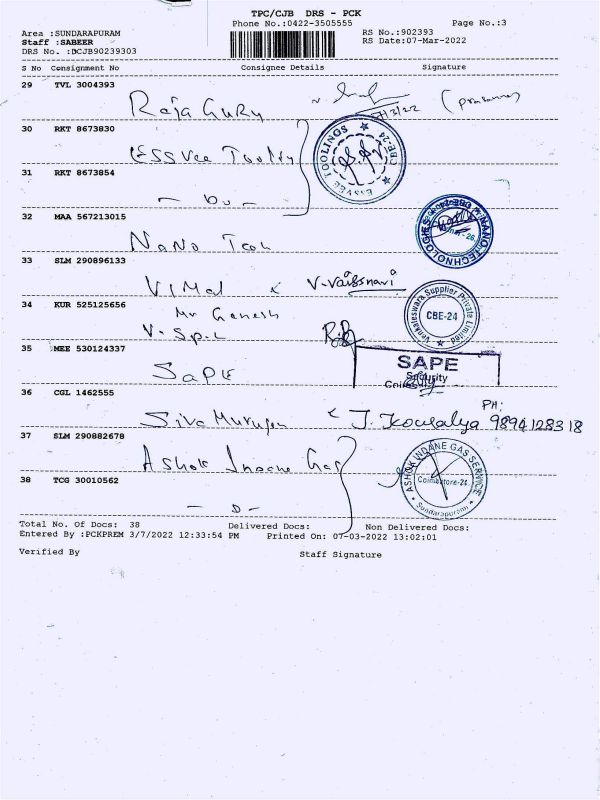 TPC/CJB DRS - PCK
Phone No.:0422-3505555
Page No.:3
Area :SUNDARAPURAM
Staff :SABEER
DRS No. :DCJB90239303
RS No.:902393
RS Date:07-Mar-2022
S No Consignment No Consignee Details Signature
29 TVL 3004393
Raja Guru 7/3/22
30 RKT 8673830
ESSVee Tooling
ESSVEE TOOLINGS CBE-24
31 RKT 8673854
- Do -
32 MAA 567213015
Nano Tech
NANO TECHNOLOGIES
33 SLM 290896133
Vimal V. Vaishnavi
34 KUR 525125656
Mr Ganesh
V. S.P.L
Venkateswara Supplier Private Limited
CBE-24
35 MEE 530124337
SAPE
SAPE
Security
36 CGL 1462555
Siva Murugan J. Kousalya PH: 9894128318
37 SLM 290882678
Ashok Indane Gas
ASHOK INDANE GAS SERVICE
Coimbatore-24.
Sundarapuram
38 TCG 30010562
- D -
Total No. Of Docs: 38 Delivered Docs: Non Delivered Docs:
Entered By :PCKPREM 3/7/2022 12:33:54 PM Printed On: 07-03-2022 13:02:01
Verified By Staff Signature